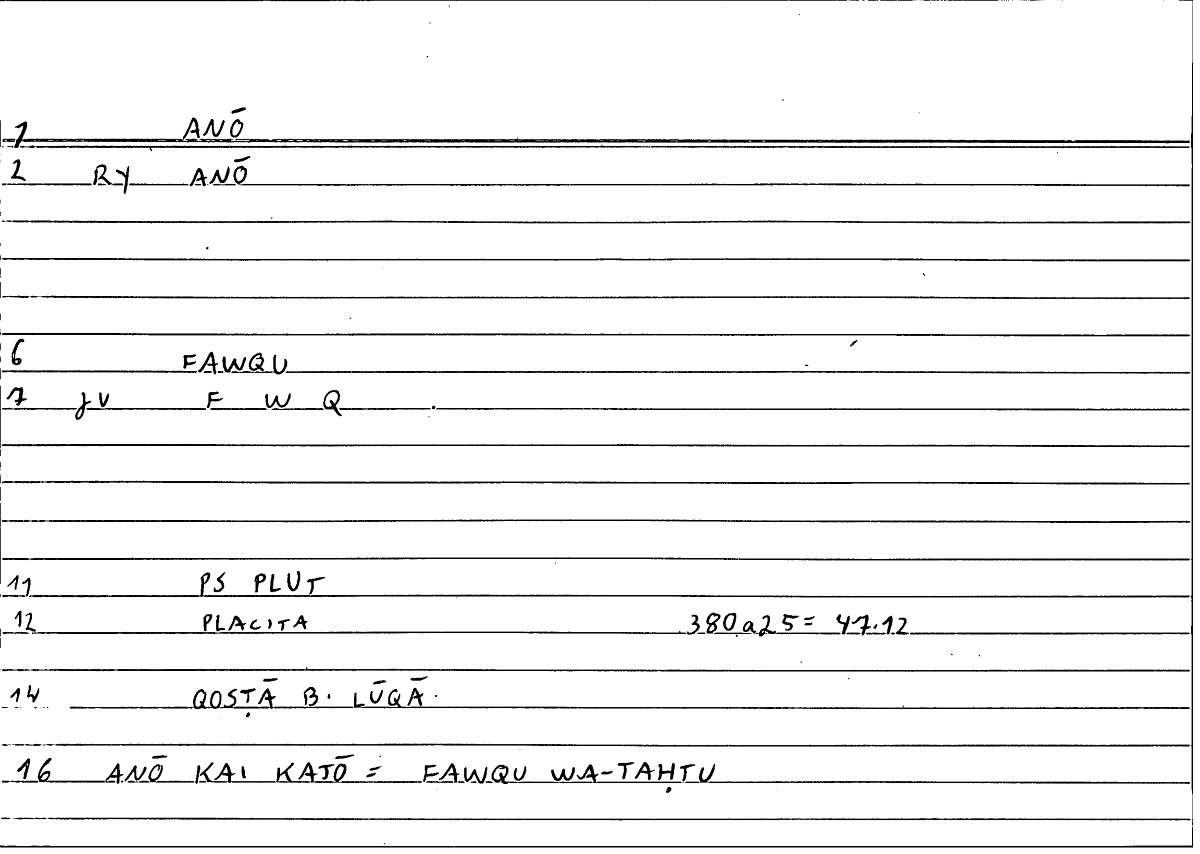 1 ANŌ
2 RY ANŌ
6 FAWQU
7 JV F W Q
11 PS PLUT
12 PLACITA 380a25= 47.12
14 QOSṬĀ B. LŪQĀ.
16 ANŌ KAI KATŌ = FAWQU WA-TAḤTU